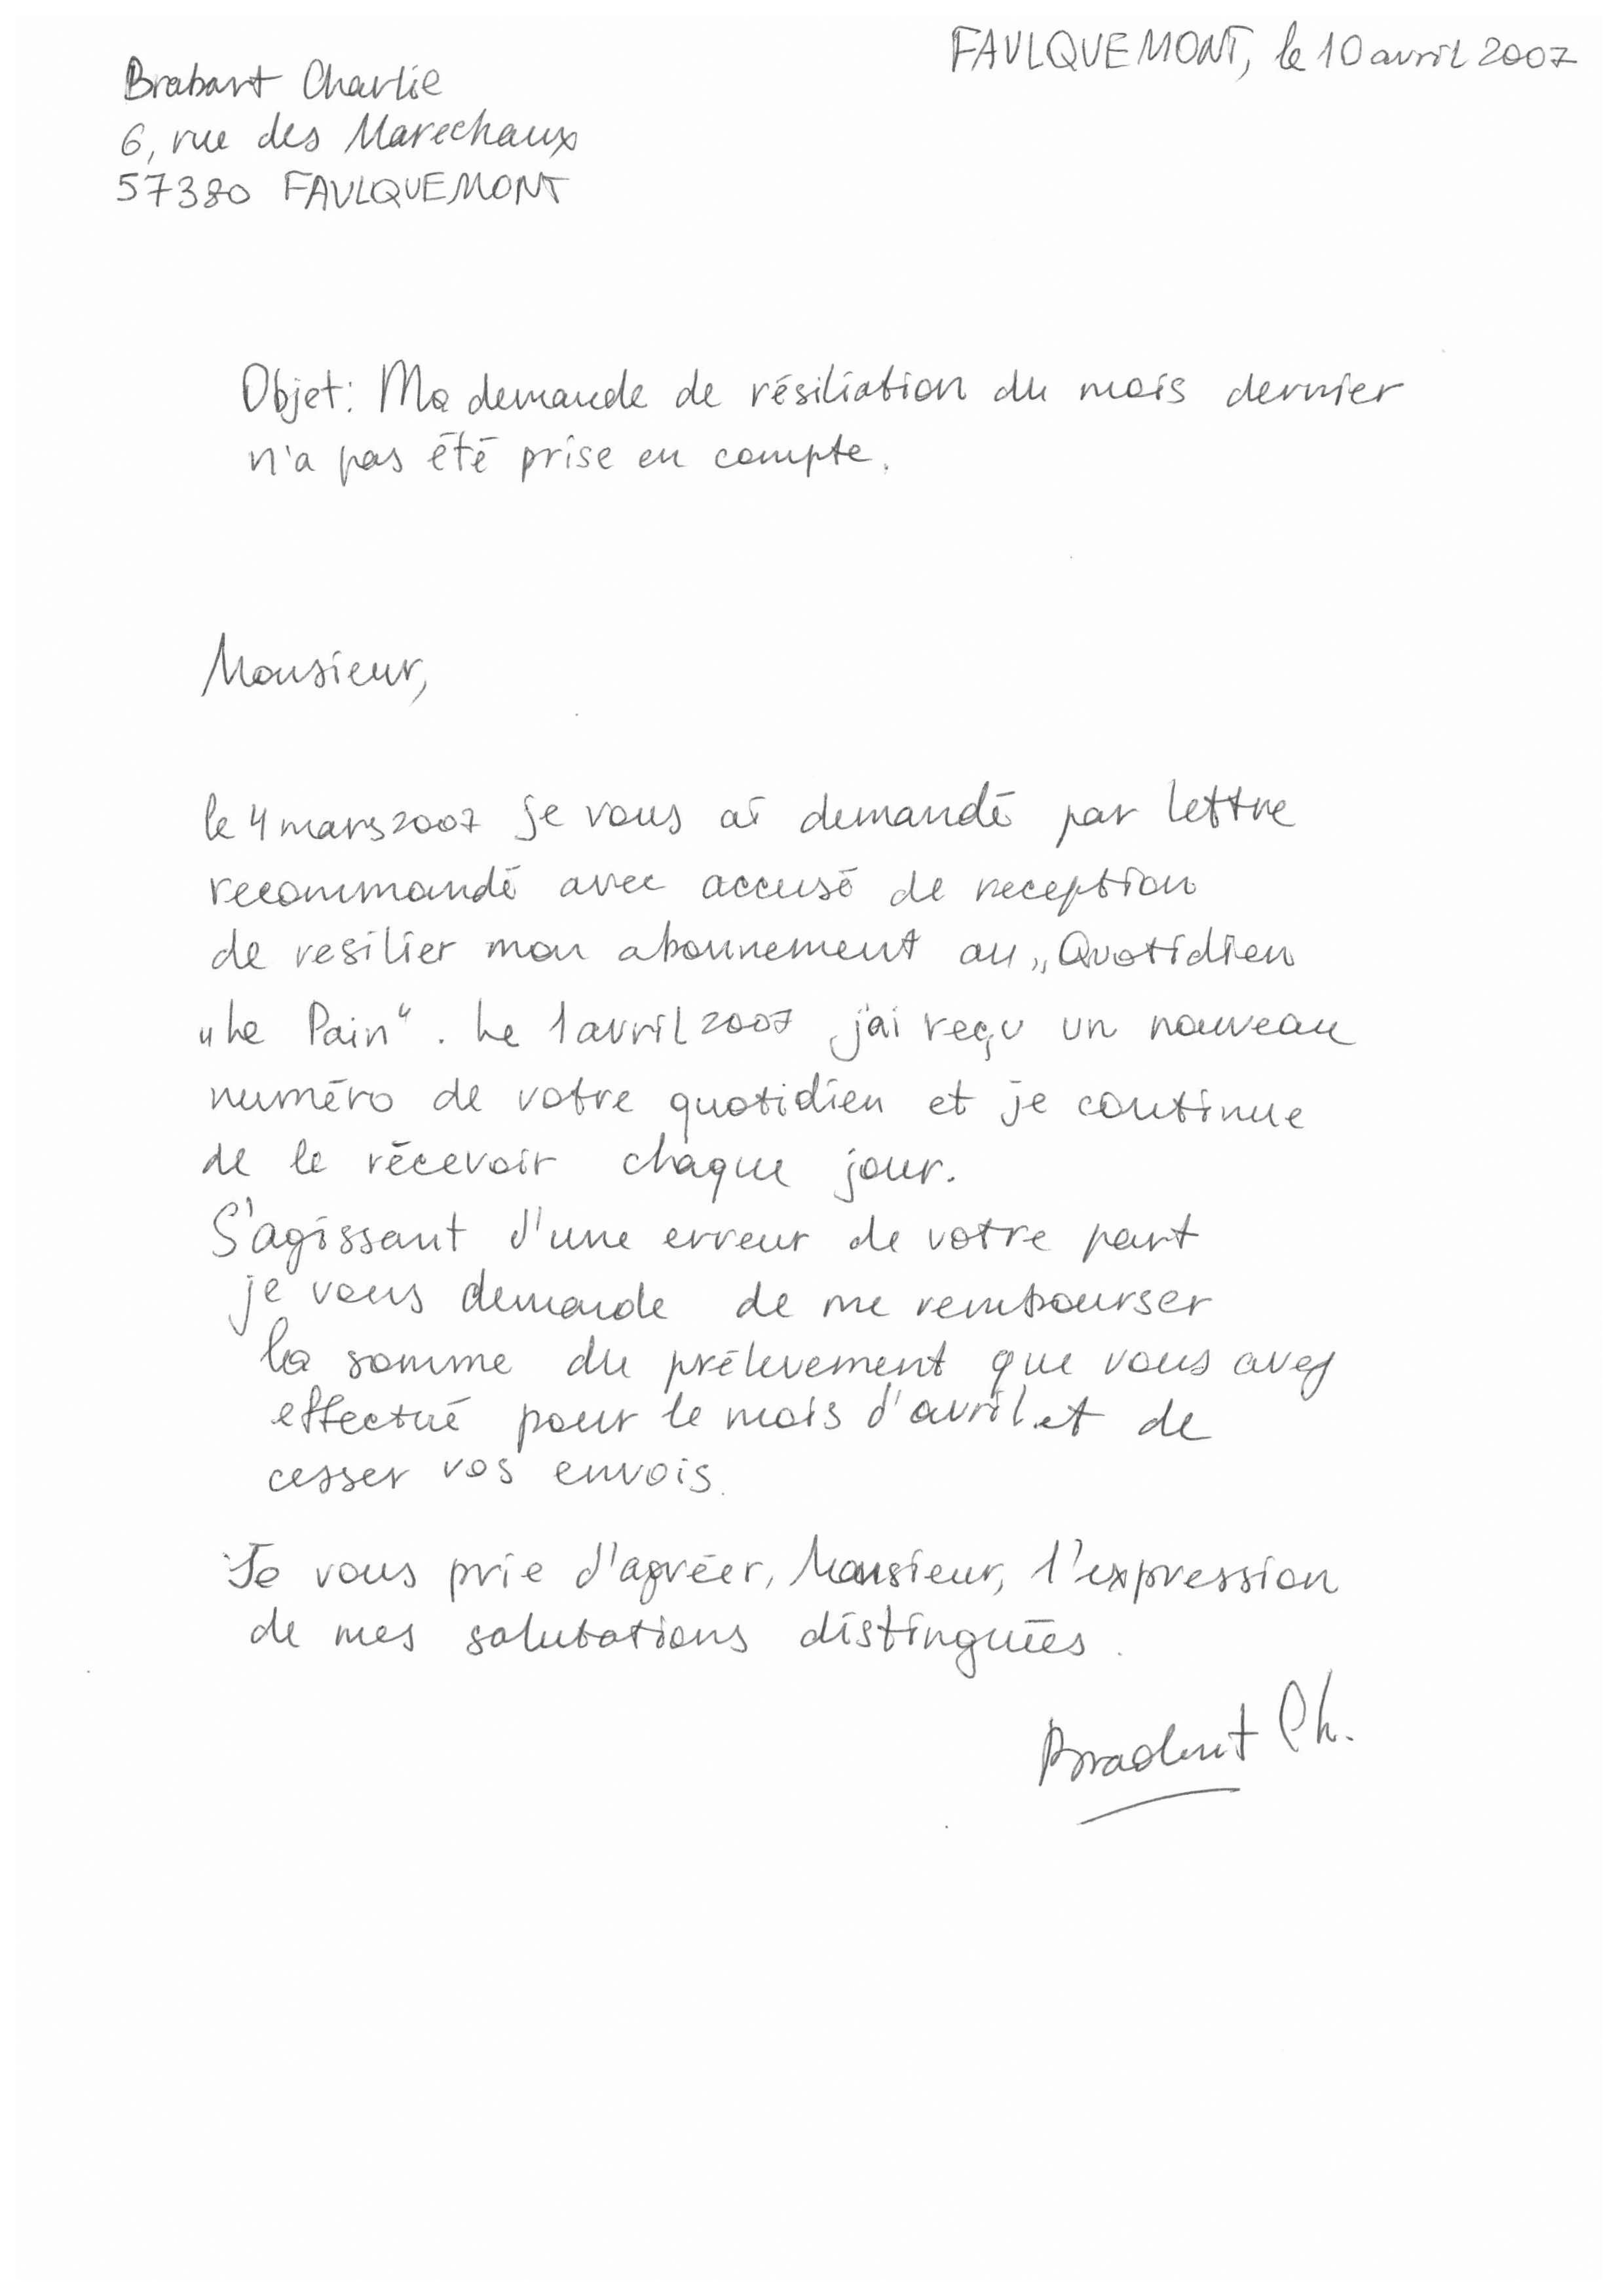 FAULQUEMONT, le 10 avril 2007
Brabant Charlie
6, rue des Marechaux
57380 FAULQUEMONT
Objet: Ma demande de résiliation du mois dernier
n'a pas été prise en compte.
Monsieur,
le 4 mars 2007 je vous ai demandé par lettre
recommandé avec accusé de reception
de resilier mon abonnement au „Quotidien
„Le Pain“. Le 1 avril 2007 j'ai reçu un nouveau
numéro de votre quotidien et je continue
de le récevoir chaque jour.
S'agissant d'une erreur de votre part
je vous demande de me rembourser
la somme du prélevement que vous avez
effectué pour le mois d'avril et de
cesser vos envois.
Je vous prie d'agréer, Monsieur, l'expression
de mes salutations distinguées.
Ch.